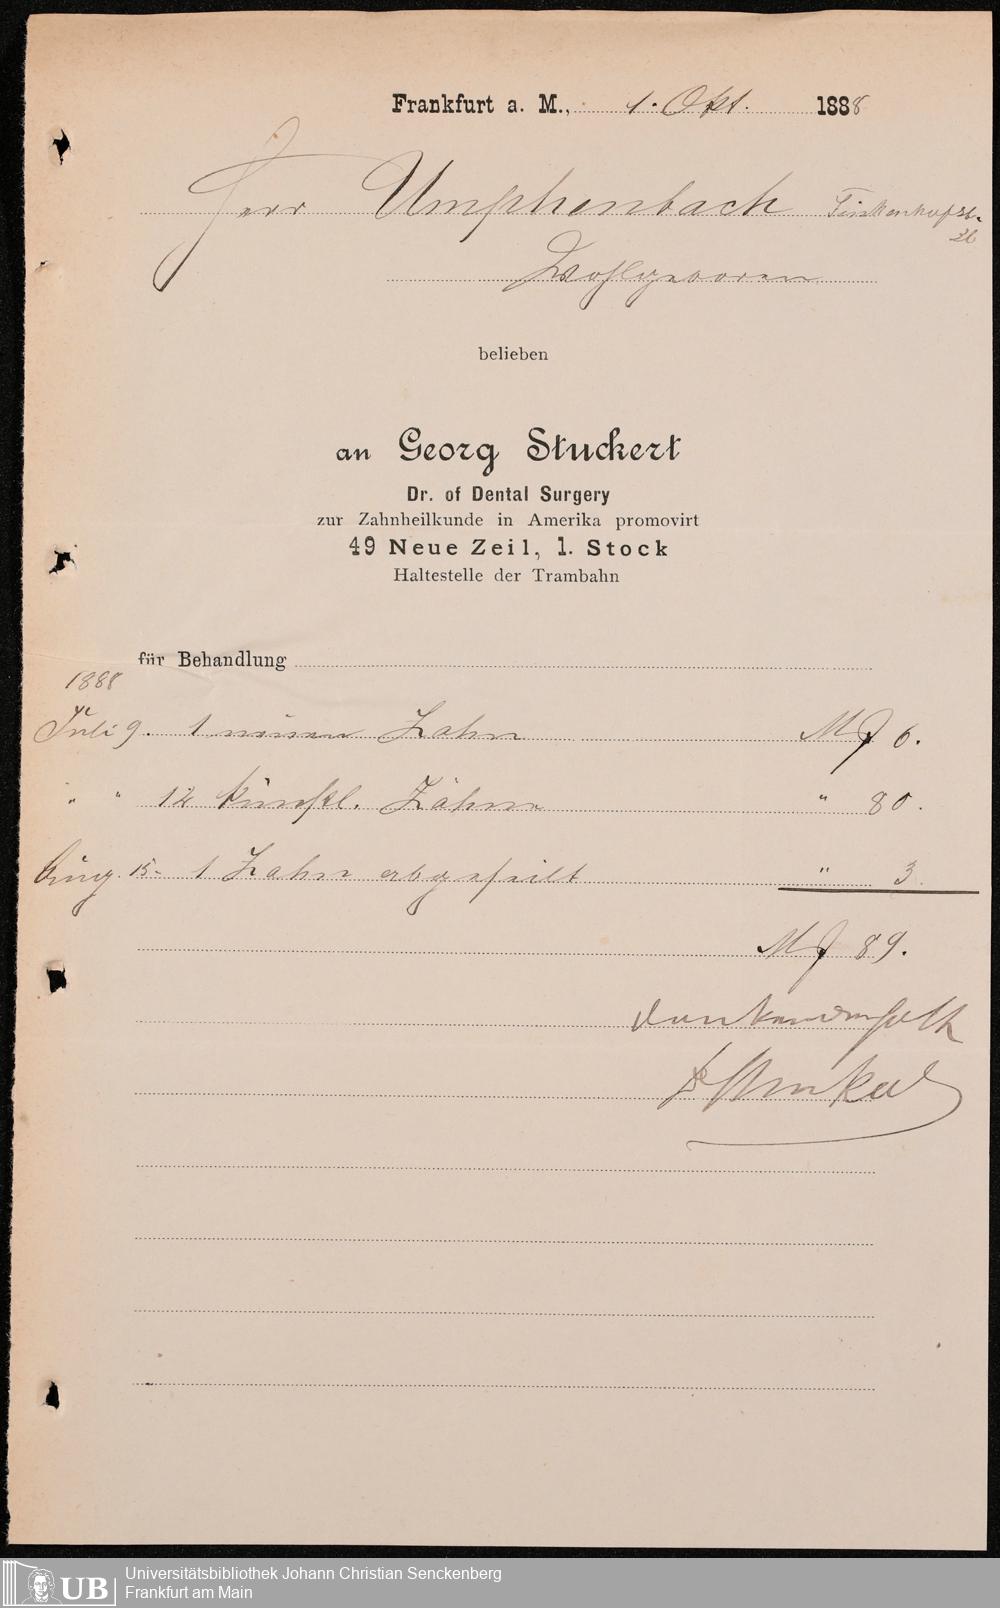 Frankfurt a. M., 1. Okt. 1888
Herr Umphenbach
26
Wohlgeboren
belieben
an Georg Stuckert
Dr. of Dental Surgery
zur Zahnheilkunde in Amerika promovirt
49 Neue Zeil, 1. Stock
Haltestelle der Trambahn
für Behandlung
1888
Juli 9. 1 neuen Zahn M 6.
" " 12 künstl. Zähne " 80.
Aug. 15. 1 Zahn abgefeilt " 3.
M 89.
dankend erhalten
UB
Universitätsbibliothek Johann Christian Senckenberg
Frankfurt am Main